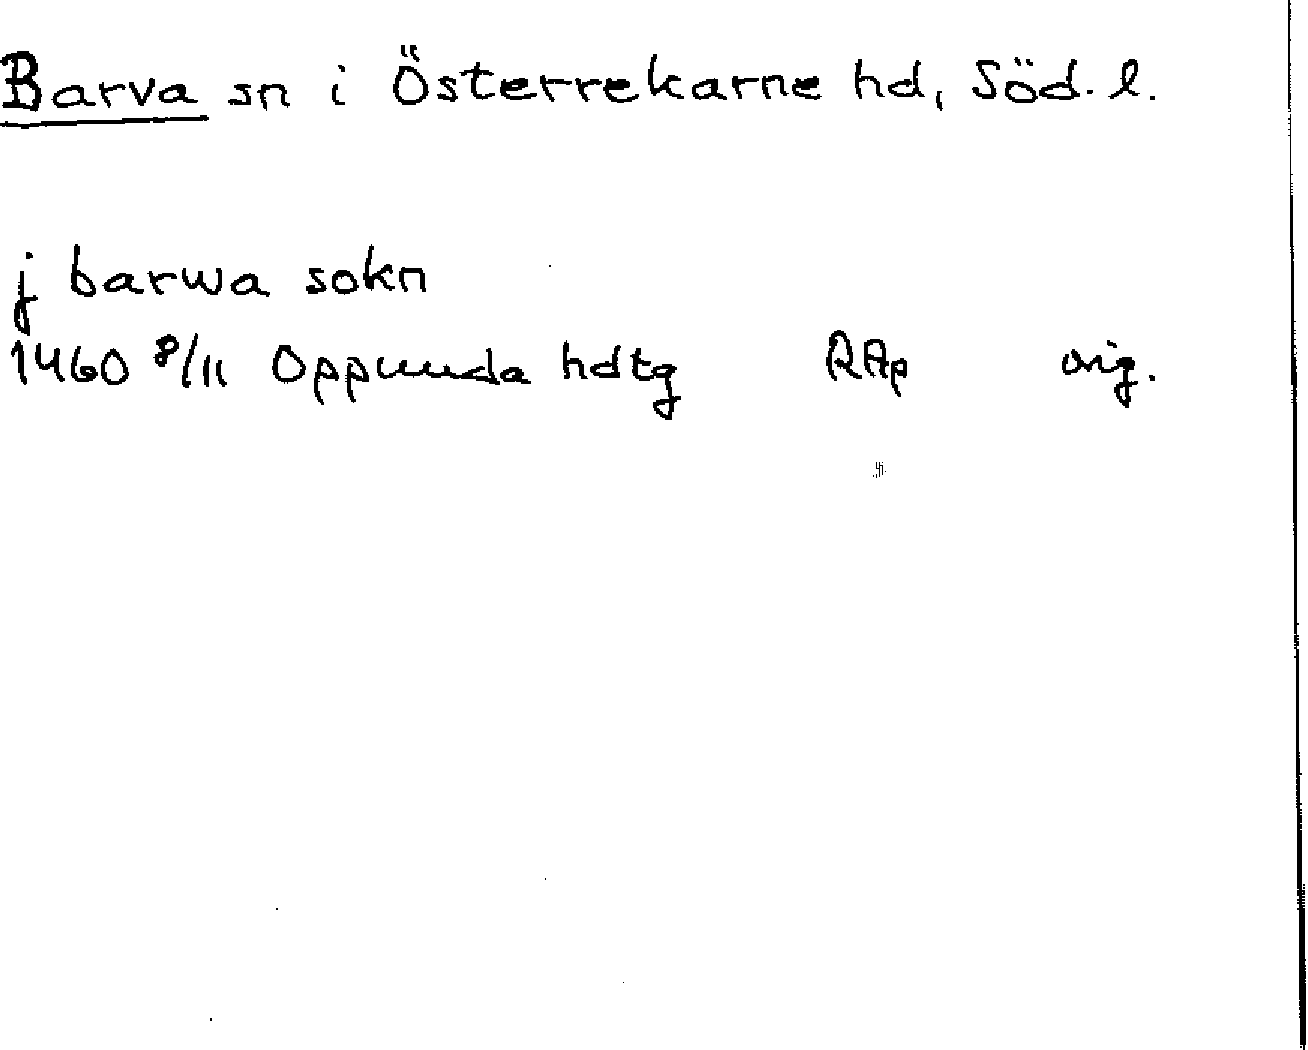 Barva sn i Österrekarne hd, Söd. l.
j barwa sokn
1460 8/11 Oppunda hdtg RAp orig.